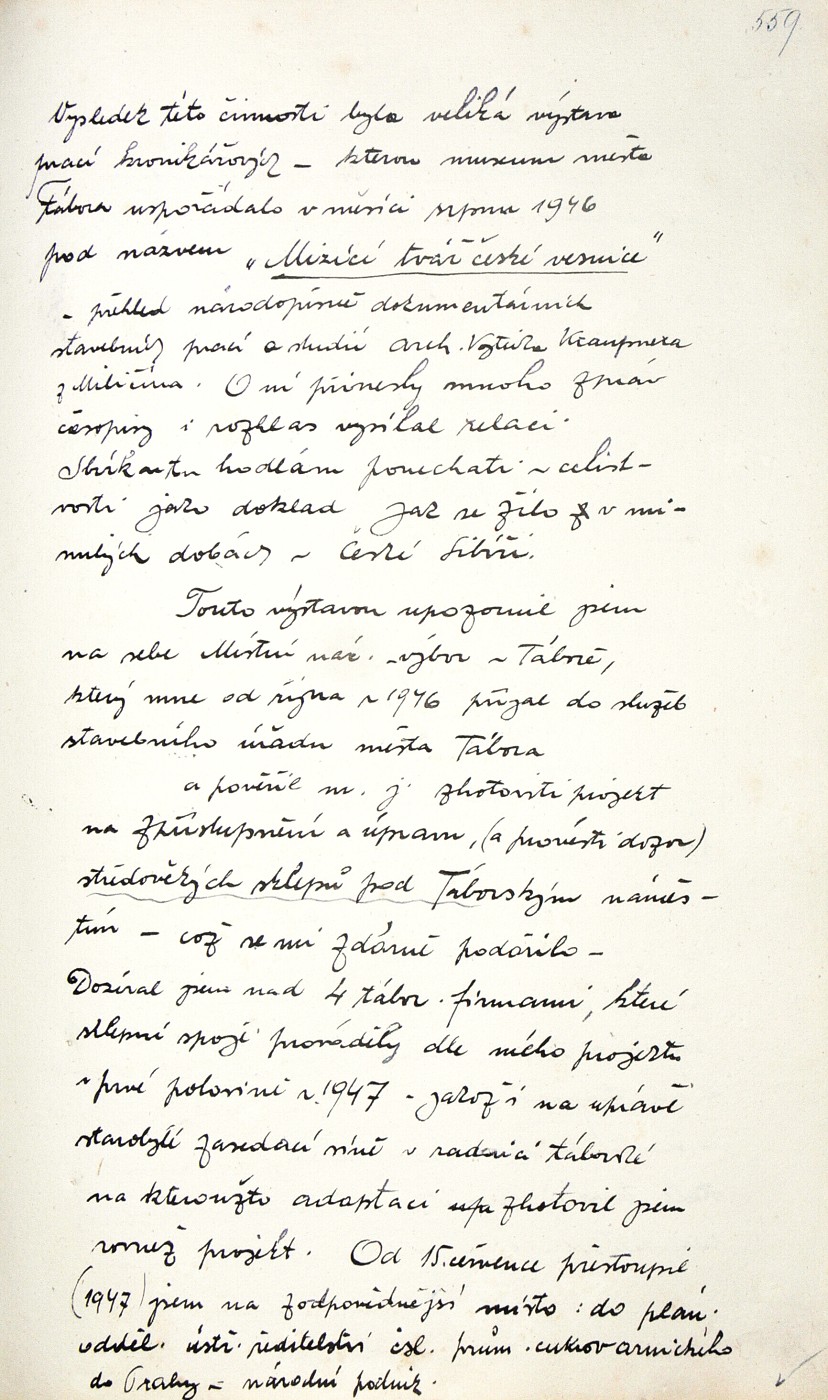 559
Vysledek této činnosti byla veliká výstava
prací kronikářových – kterou museum města
Tábora uspořádalo v měsíci srpnu 1946
pod názvem „Mizící tvář české vesnice“
- přehled národopisně dokumentárních
stavebních prací a studií arch. Vojtěcha Kraupnera
z Miličína. O ní přinesly mnoho zpráv
časopisy i rozhlas vysílal relaci.
Sbírku tu hodlám ponechati v celist-
vosti jako doklad jak se žilo v mi-
nulých dobách v České Sibiři.
Touto výstavou upozornil jsem
na sebe Místní nár. výbor v Táboře,
který mne od října r 1946 přijal do služeb
stavebního úřadu města Tábora
a pověřil m. j. zhotoviti projekt
na zpřístupnění a úpravu, (a prověsti dozor)
středověkých sklepů pod Táborským náměs-
tím – což se mi zdárně podařilo –
Dozíral jsem nad 4 tábor. firmami, které
sklepní spoje prováděly dle mého projektu
v prvé polovině r. 1947 - jakož i na úpravě
starobylé zasedací síně v radnici táborské
na kteroužto adaptaci zhotovil jsem
rovněž projekt. Od 15. července přestoupil
(1947) jsem na zodpovědnější místo: do plán.
odděl. ústř. ředitelství čsl. prům. cukrovarnického
do Prahy – národní podnik.